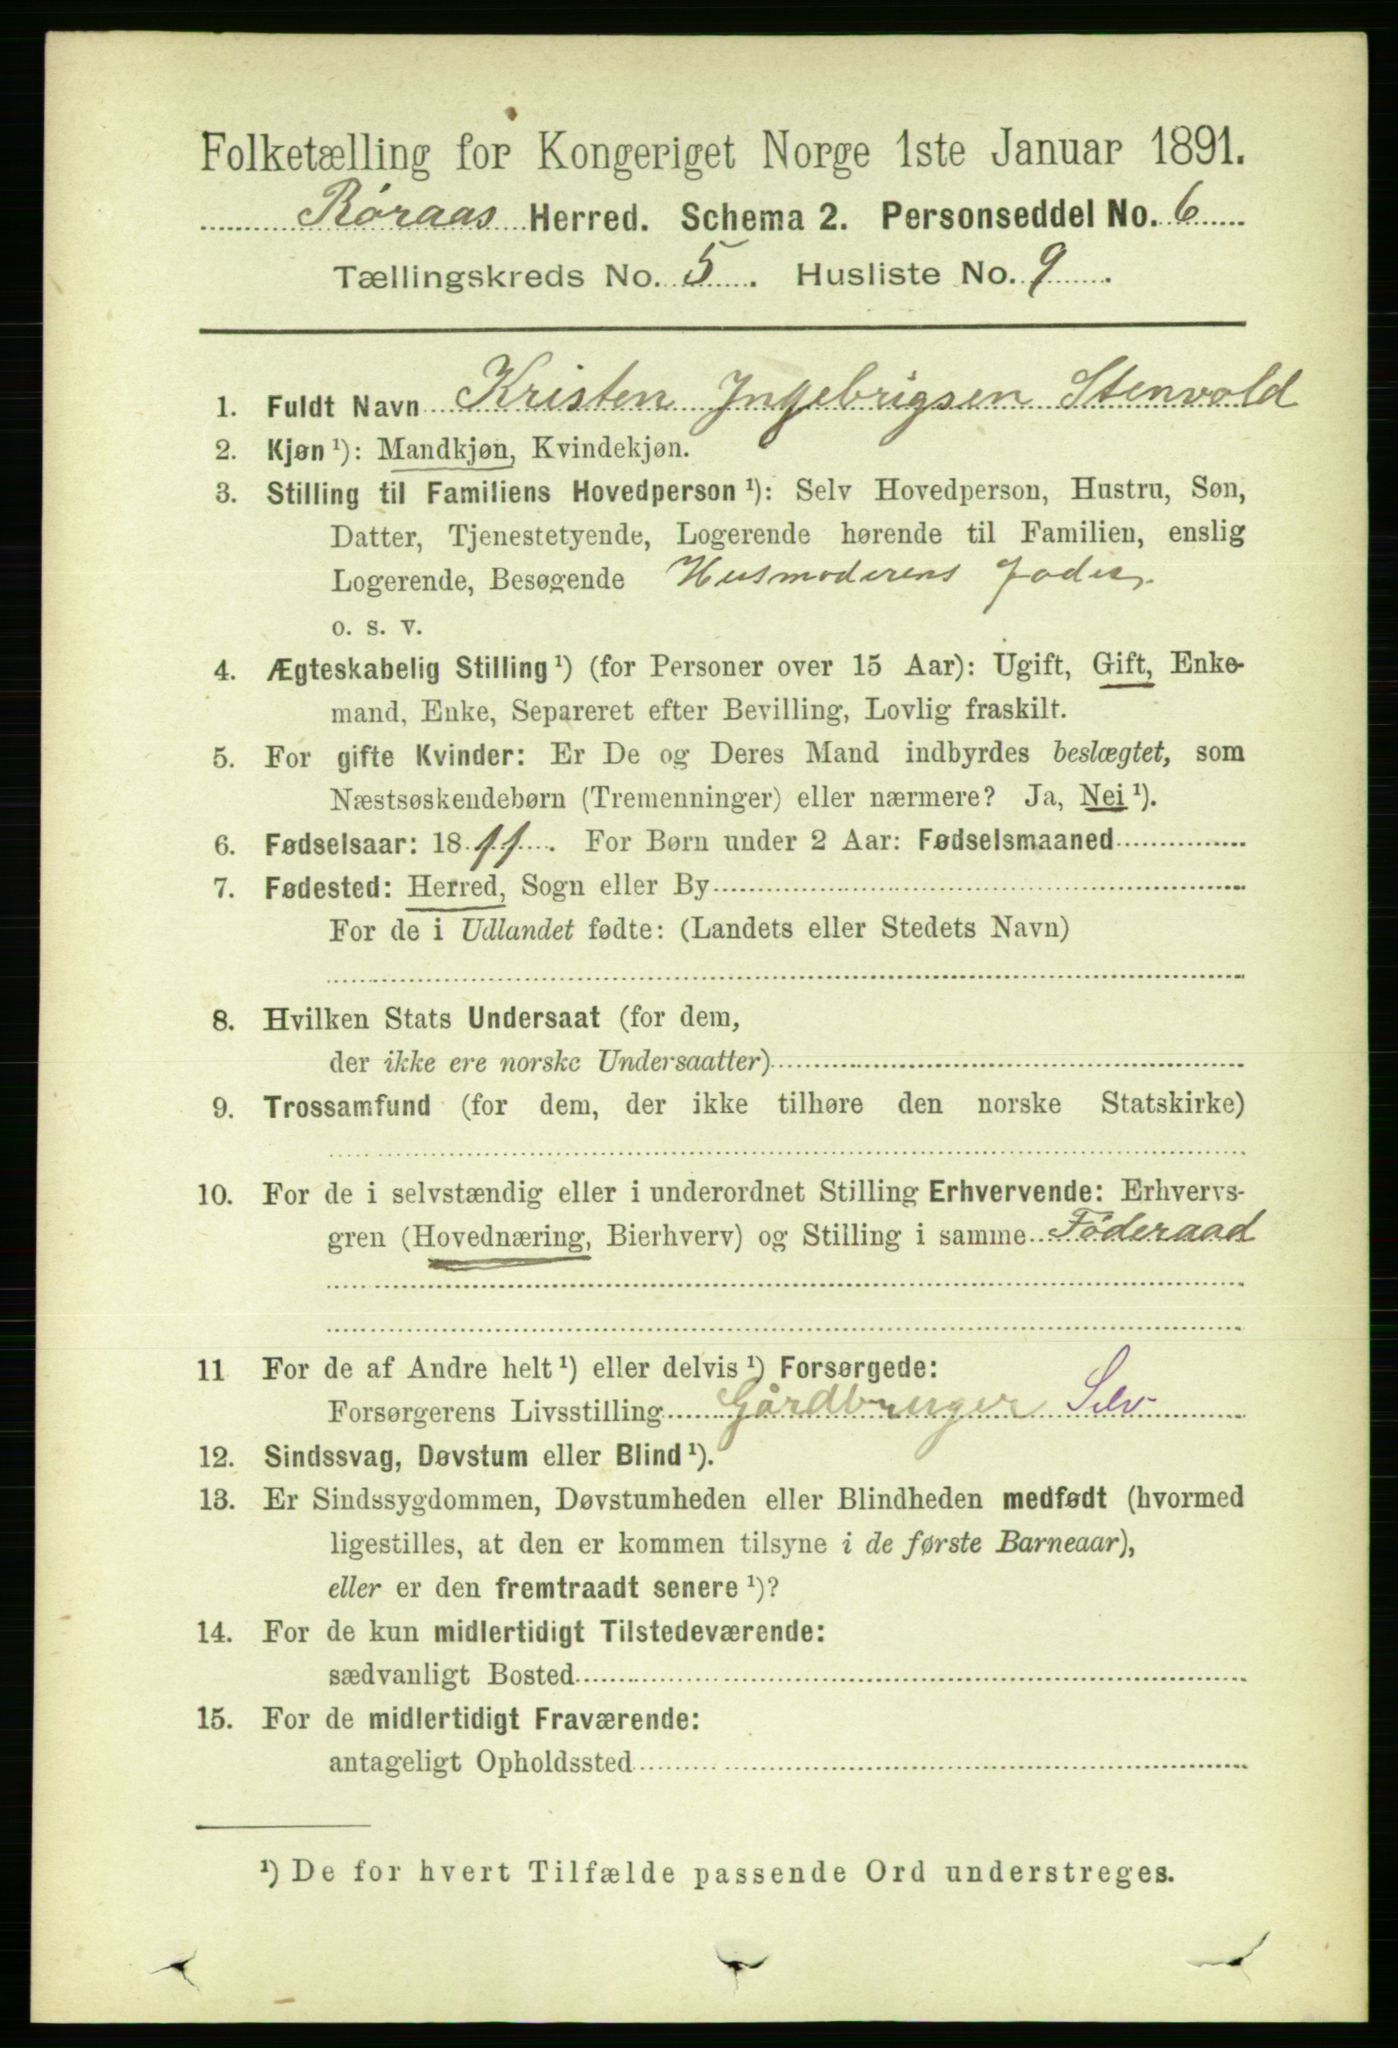 Folketælling for Kongeriget Norge 1ste Januar 1891.
Røraas Herred. Schema 2. Personseddel No. 6
Tællingskreds No. 5. Husliste No. 9.
1. Fuldt Navn Kristen Ingebrigsen Stenvold
2. Kjøn ¹): Mandkjøn, Kvindekjøn.
3. Stilling til Familiens Hovedperson ¹): Selv Hovedperson, Hustru, Søn,
Datter, Tjenestetyende, Logerende hørende til Familien, enslig
Logerende, Besøgende Husmoderens Fader
o. s. v.
4. Ægteskabelig Stilling ¹) (for Personer over 15 Aar): Ugift, Gift, Enke-
mand, Enke, Separeret efter Bevilling, Lovlig fraskilt.
5. For gifte Kvinder: Er De og Deres Mand indbyrdes beslægtet, som
Næstsøskendebørn (Tremenninger) eller nærmere? Ja, Nei ¹).
6. Fødselsaar: 1811. For Børn under 2 Aar: Fødselsmaaned
7. Fødested: Herred, Sogn eller By
For de i Udlandet fødte: (Landets eller Stedets Navn)
8. Hvilken Stats Undersaat (for dem,
der ikke ere norske Undersaatter)
9. Trossamfund (for dem, der ikke tilhøre den norske Statskirke)
10. For de i selvstændig eller i underordnet Stilling Erhvervende: Erhvervs-
gren (Hovednæring, Bierhverv) og Stilling i samme Föderaad
11 For de af Andre helt ¹) eller delvis ¹) Forsørgede:
Forsørgerens Livsstilling Gårdbruger Selv
12. Sindssvag, Døvstum eller Blind ¹).
13. Er Sindssygdommen, Døvstumheden eller Blindheden medfødt (hvormed
ligestilles, at den er kommen tilsyne i de første Barneaar),
eller er den fremtraadt senere ¹)?
14. For de kun midlertidigt Tilstedeværende:
sædvanligt Bosted
15. For de midlertidigt Fraværende:
antageligt Opholdssted
¹) De for hvert Tilfælde passende Ord understreges.